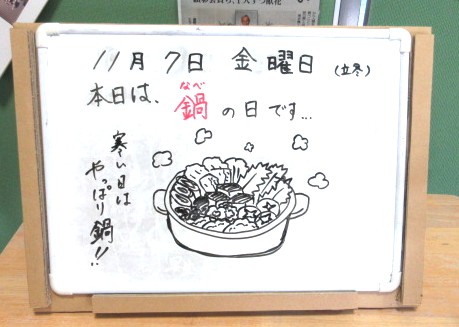 11月7日 金曜日 (立冬)
本日は、鍋の日です...
なべ
寒い日は
やっぱり鍋!!